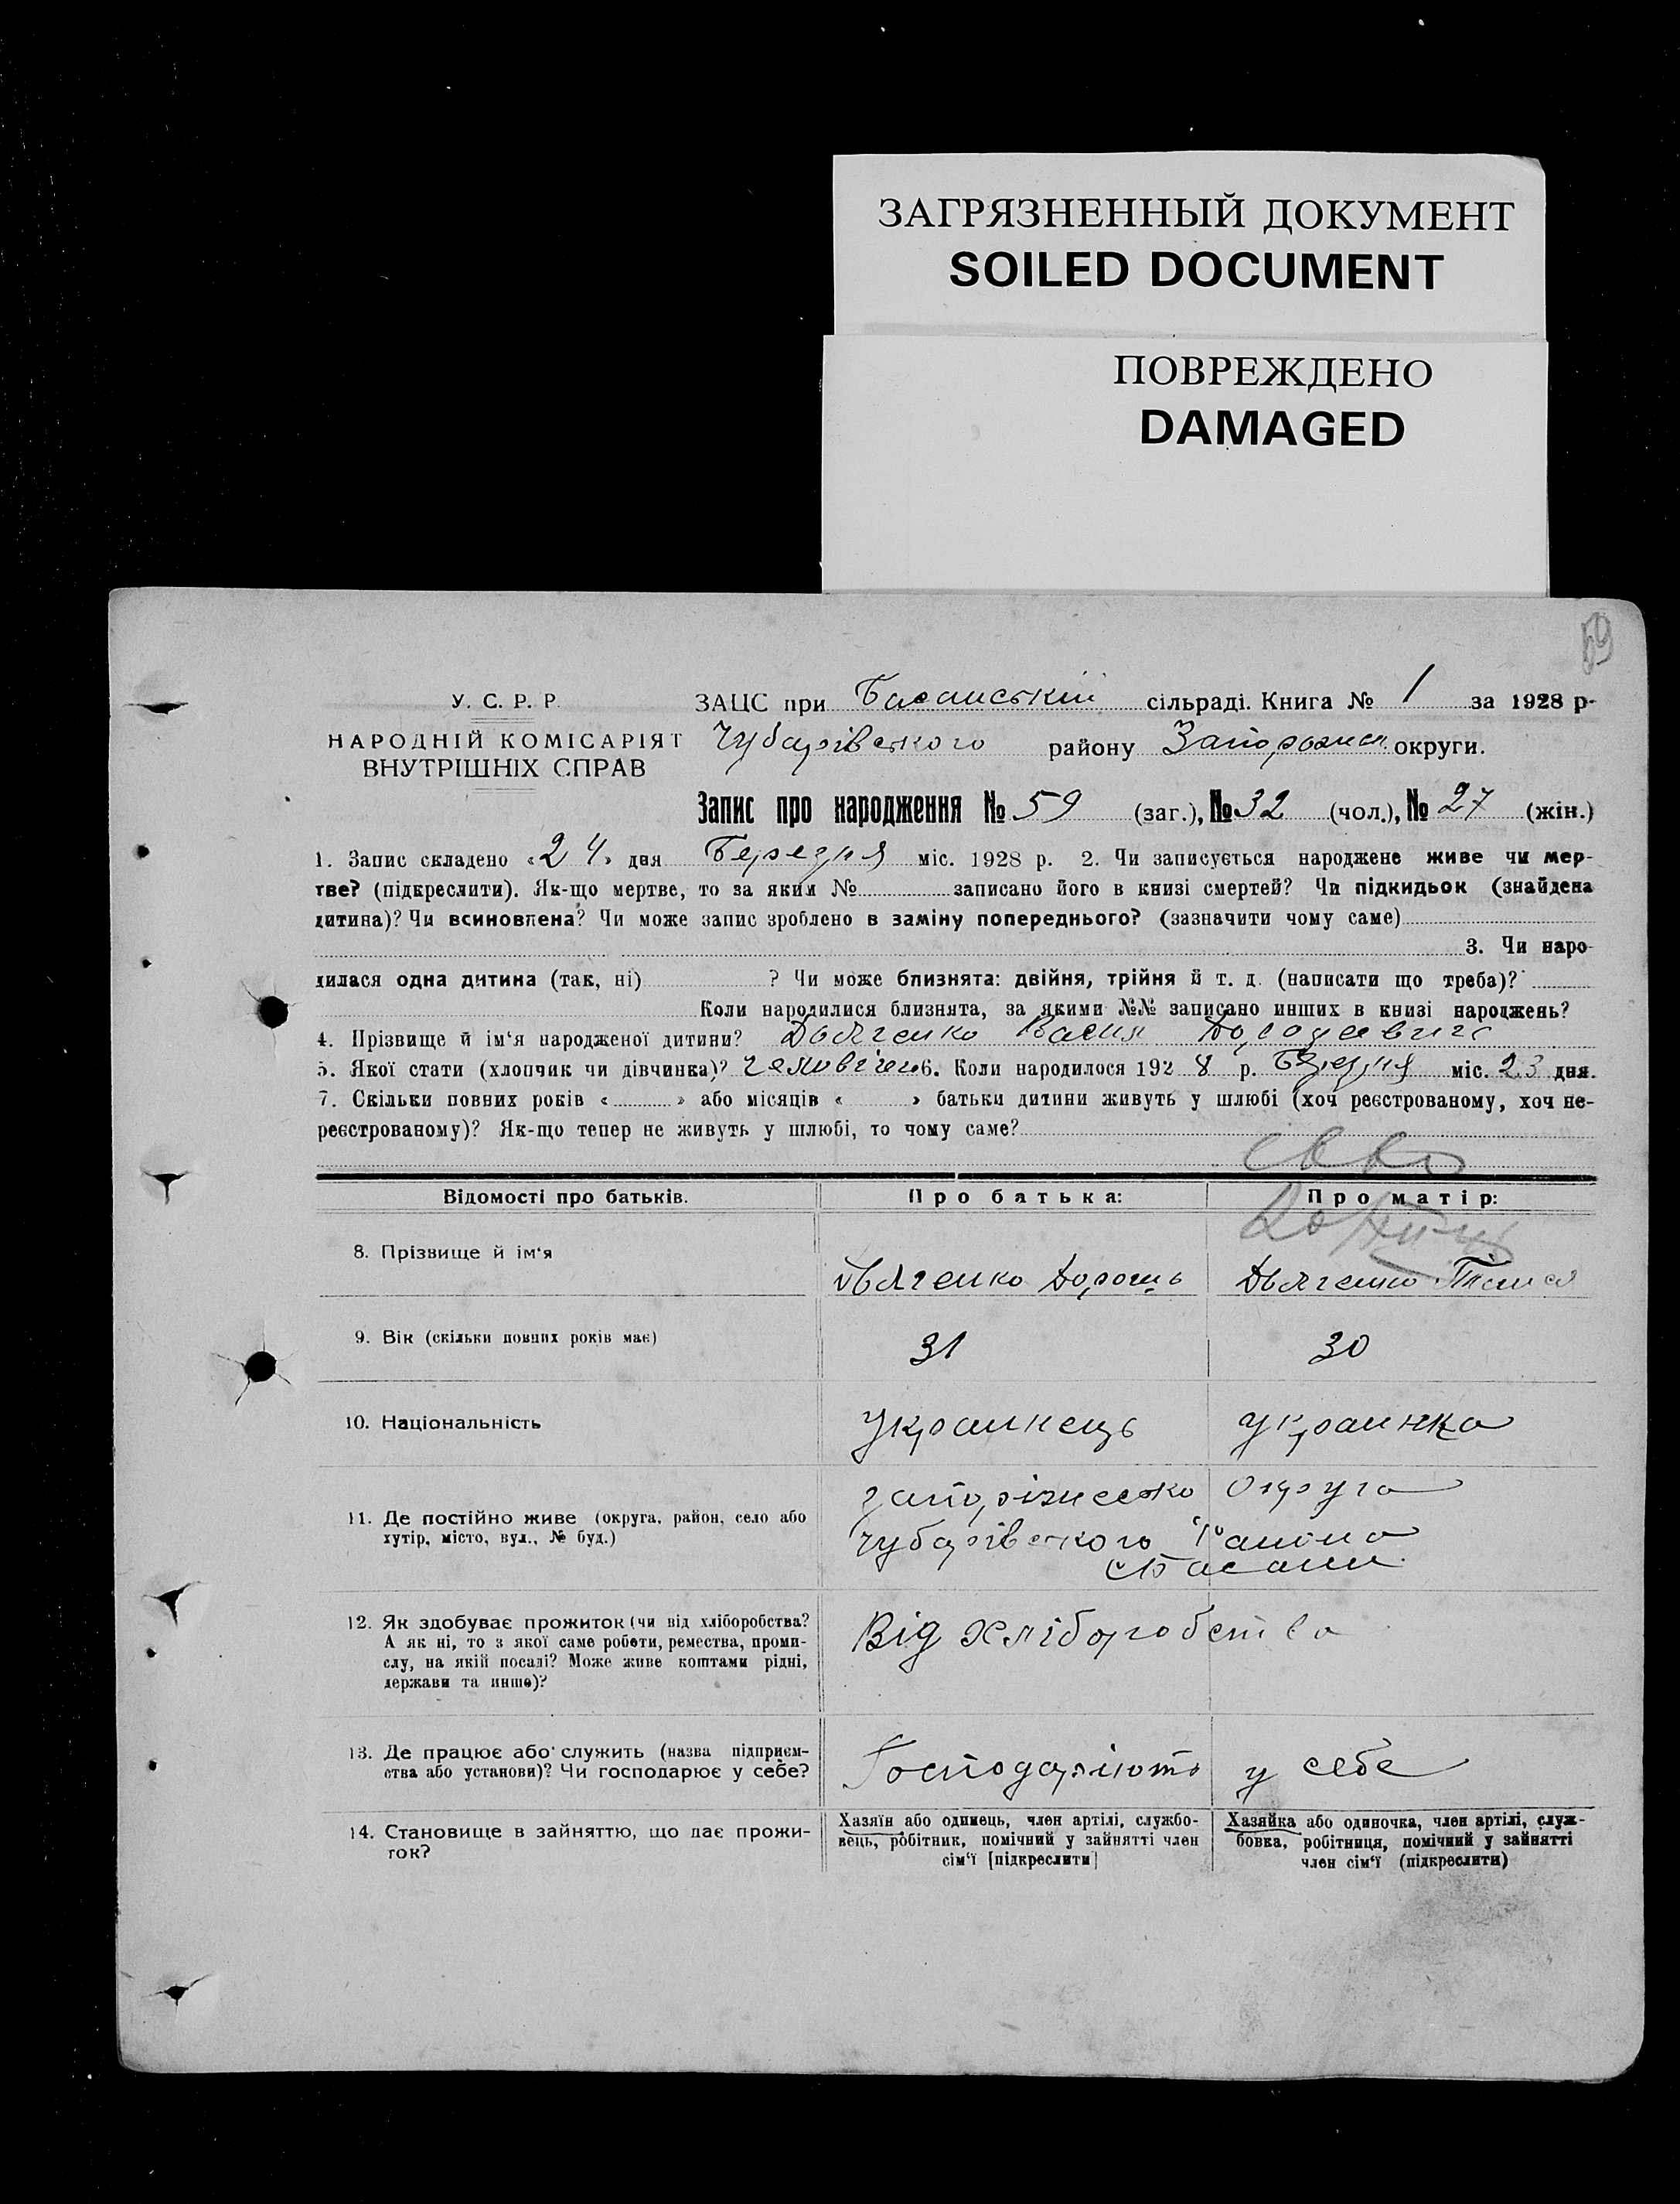 ЗАГРЯЗНЕННЫЙ ДОКУМЕНТ
SOILED DOCUMENT
ПОВРЕЖДЕНО
DAMAGED
У. С. Р. Р.
НАРОДНІЙ КОМІСАРІЯТ
ВНУТРІШНІХ СПРАВ
ЗАЦС при Басанській сільраді. Книга № 1 за 1928 р-
Чубарівського району округи.
Запис про народження № 59 (заг.), № 32 (чол.), № 27 (жін.)
1. Запис складено «24» дня Березня міс. 1928 р. 2. Чи записується народжене живе чи мер-
тве? (підкреслити). Як-що мертве, то за яким № записано його в книзі смертей? Чи підкидьок (знайдена
дитина)? Чи всиновлена? Чи може запис зроблено в заміну попереднього? (зазначити чому саме)
3. Чи наро-
дилася одна дитина (так, ні) ? Чи може близнята: двійня, трійня й т. д. (написати що треба)?
Коли народилися близнята, за якими №№ записано инших в книзі народжень?
4. Прізвище й ім'я народженої дитини? Дьяченко
5. Якої статі (хлопчик чи дівчинка)? 6. Коли народилося 1928 р. Березня міс. 23 дня.
7. Скільки повних років « » або місяців « » батьки дитини живуть у шлюбі (хоч реєстрованому, хоч не-
реєстрованому)? Як-що тепер не живуть у шлюбі, то чому саме?
Відомості про батьків.
Про батька:
Про матір:
8. Прізвище й ім'я
Дьяченко
Дьяченко
9. Вік (скільки повних років має)
31
30
10. Національність
Украинець
Украинка
11. Де постійно живе (округа, район, село або
хутір, місто, вул., № буд.)
Запоріжсько Округа
Чубарівського Района
с Басани
12. Як здобуває прожиток (чи від хліборобства?
А як ні, то з якої саме роботи, ремества, проми-
слу, на якій посаді? Може живе коштами рідні,
держави та инше)?
Від хліборобства
13. Де працює або служить (назва підприєм-
ства або установи)? Чи господарює у себе?
Господарюють у себе
14. Становище в зайняттю, що дає прожи-
ток?
Хазяїн або одинець, член артілі, службо-
вець, робітник, помічний у зайнятті член
сім'ї [підкреслити]
Хазяйка або одиночка, член артілі, служ-
бовка, робітниця, помічний у зайнятті
член сім'ї (підкреслити)